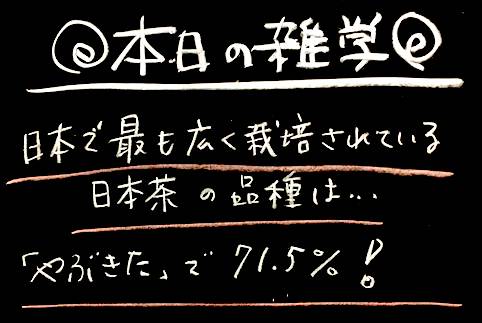 @本日の雑学@
日本で最も広く栽培されている
日本茶の品種は…
「やぶきた」で71.5%!